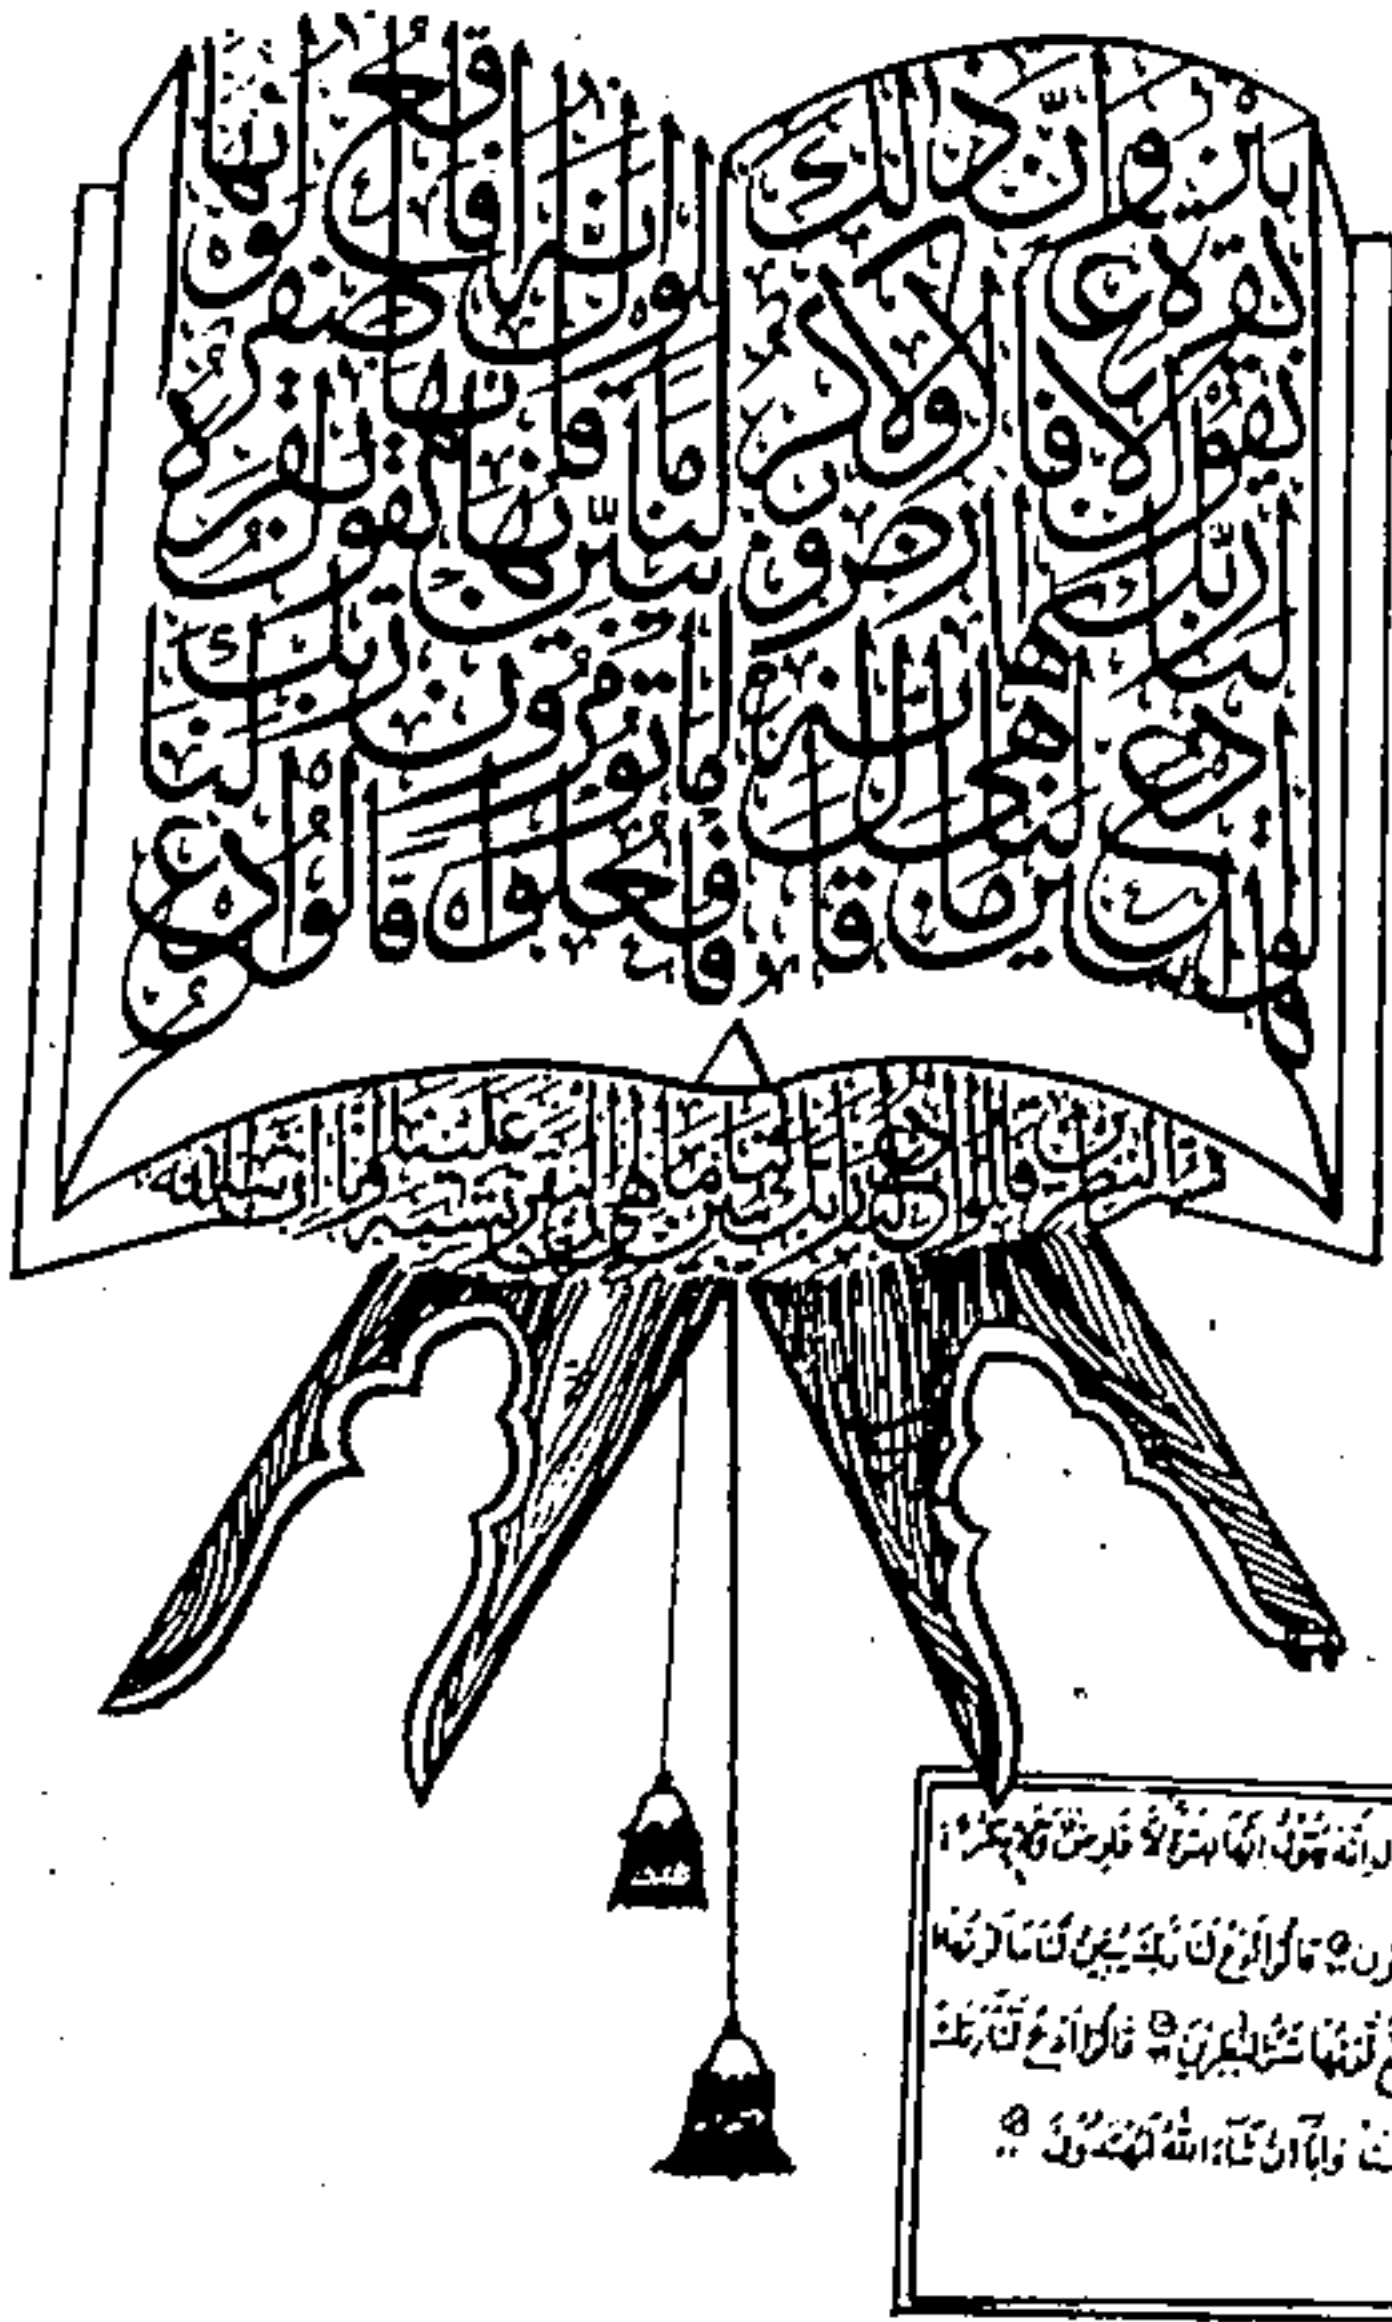 قالوا ادع لنا ربك يبين لنا ما هي قال انه يقول انها بقرة لا فارض ولا بكر عوان بين ذلك
فافعلوا ما تؤمرون قالوا ادع لنا ربك يبين لنا ما لونها قال انه يقول انها بقرة صفراء فاقع لونها
تسر الناظرين قالوا ادع لنا ربك يبين لنا ما هي ان البقر تشابه علينا وانا ان شاء الله
اِنَّهٗ يَقُوْلُ اِنَّهَا بَقَرَةٌ لَّا فَارِضٌ وَّلَا بِكْرٌ
قَالُوا ادْعُ لَنَا رَبَّكَ يُبَيِّنْ لَّنَا مَا لَوْنُهَا
لَّوْنُهَا تَسُرُّ النّٰظِرِيْنَ قَالُوا ادْعُ لَنَا رَبَّكَ
وَاِنَّآ اِنْ شَآءَ اللّٰهُ لَمُهْتَدُوْنَ